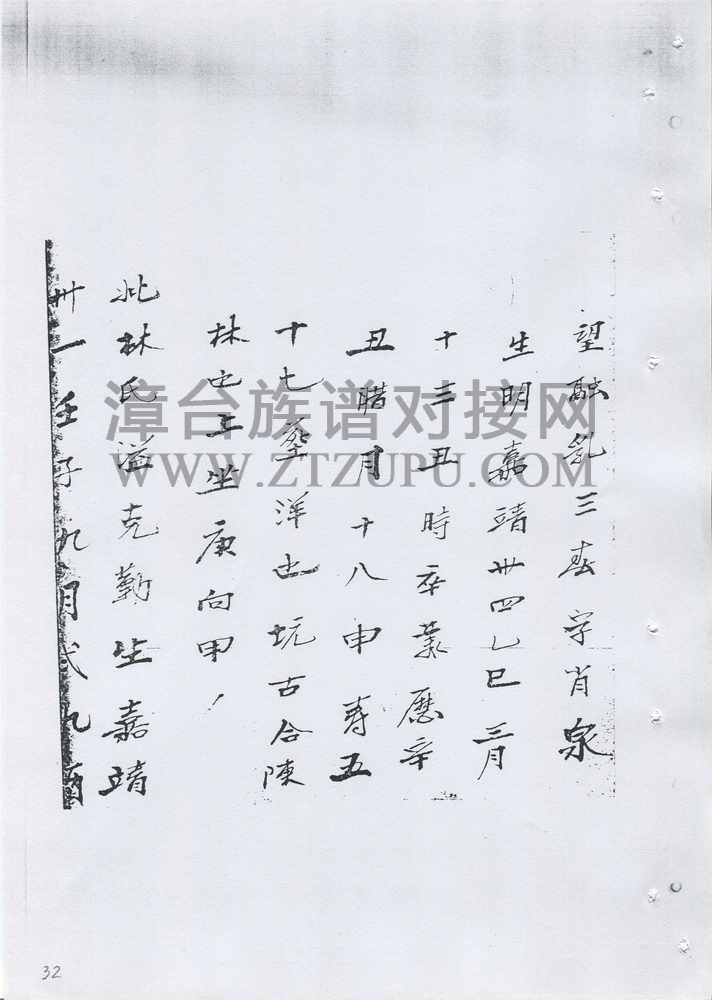 望融乳三春字肖泉
生明嘉靖卅四乙巳三月
十三丑時卒萬歷辛
丑腊月十八申寿五
十七塟洋尾坑古仝陳
林也上坐庚向甲
妣林氏溢克勤生嘉靖
卅一壬子九月弍九酉
漳台族谱对接网
WWW.ZTZUPU.COM
32